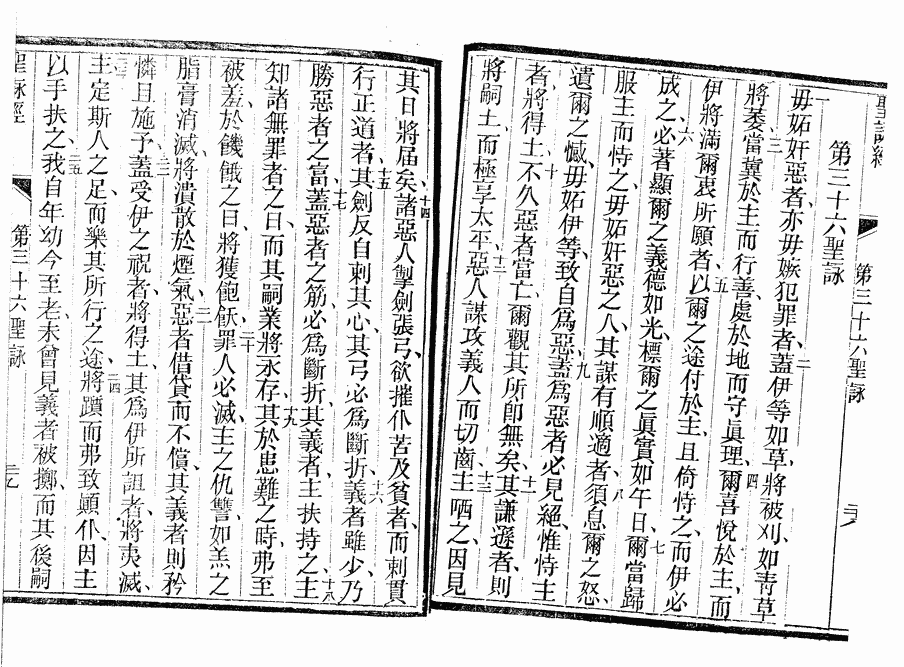 聖詠經
第三十六聖詠
第三十六聖詠
一
毋妬奸惡者亦毋嫉犯罪者二蓋伊等如草將被刈如靑草
將萎三當冀於主而行善處於地而守眞理四爾喜悅於主而
伊將滿爾衷所願者五以爾之途付於主且倚恃之而伊必
成之六必著顯爾之義德如光標爾之眞實如午日七爾當歸
服主而恃之毋妬奸惡之人其謀有順適者八須息爾之怒
遣爾之憾毋妬伊等致自爲惡九蓋爲惡者必見絕惟恃主
者將得土十不久惡者當亡爾觀其所卽無矣十一其謙遜者則
將嗣土而極享太平十二惡人謀攻義人而切齒十三主哂之因見
其日將屆矣十四諸惡人掣劍張弓欲摧仆苦及貧者而刺貫
行正道者十五其劍反自刺其心其弓必爲斷折十六義者雖少乃
勝惡者之富十七蓋惡者之筋必爲斷折其義者主扶持之十八主
知諸無罪者之日而其嗣業將永存十九其於患難之時弗至
被羞於饑餓之日將獲飽飫二十罪人必滅主之仇讐如羔之
脂膏消滅將潰散於煙氣二一惡者借貸而不償其義者則矜
憐且施予二二蓋受伊之祝者將得土其爲伊所詛者將夷滅
二三主定斯人之足而樂其所行之途二四將躓而弗致顚仆因主
以手扶之二五我自年幼今至老未曾見義者被擲而其後嗣
聖詠經
第三十六聖詠